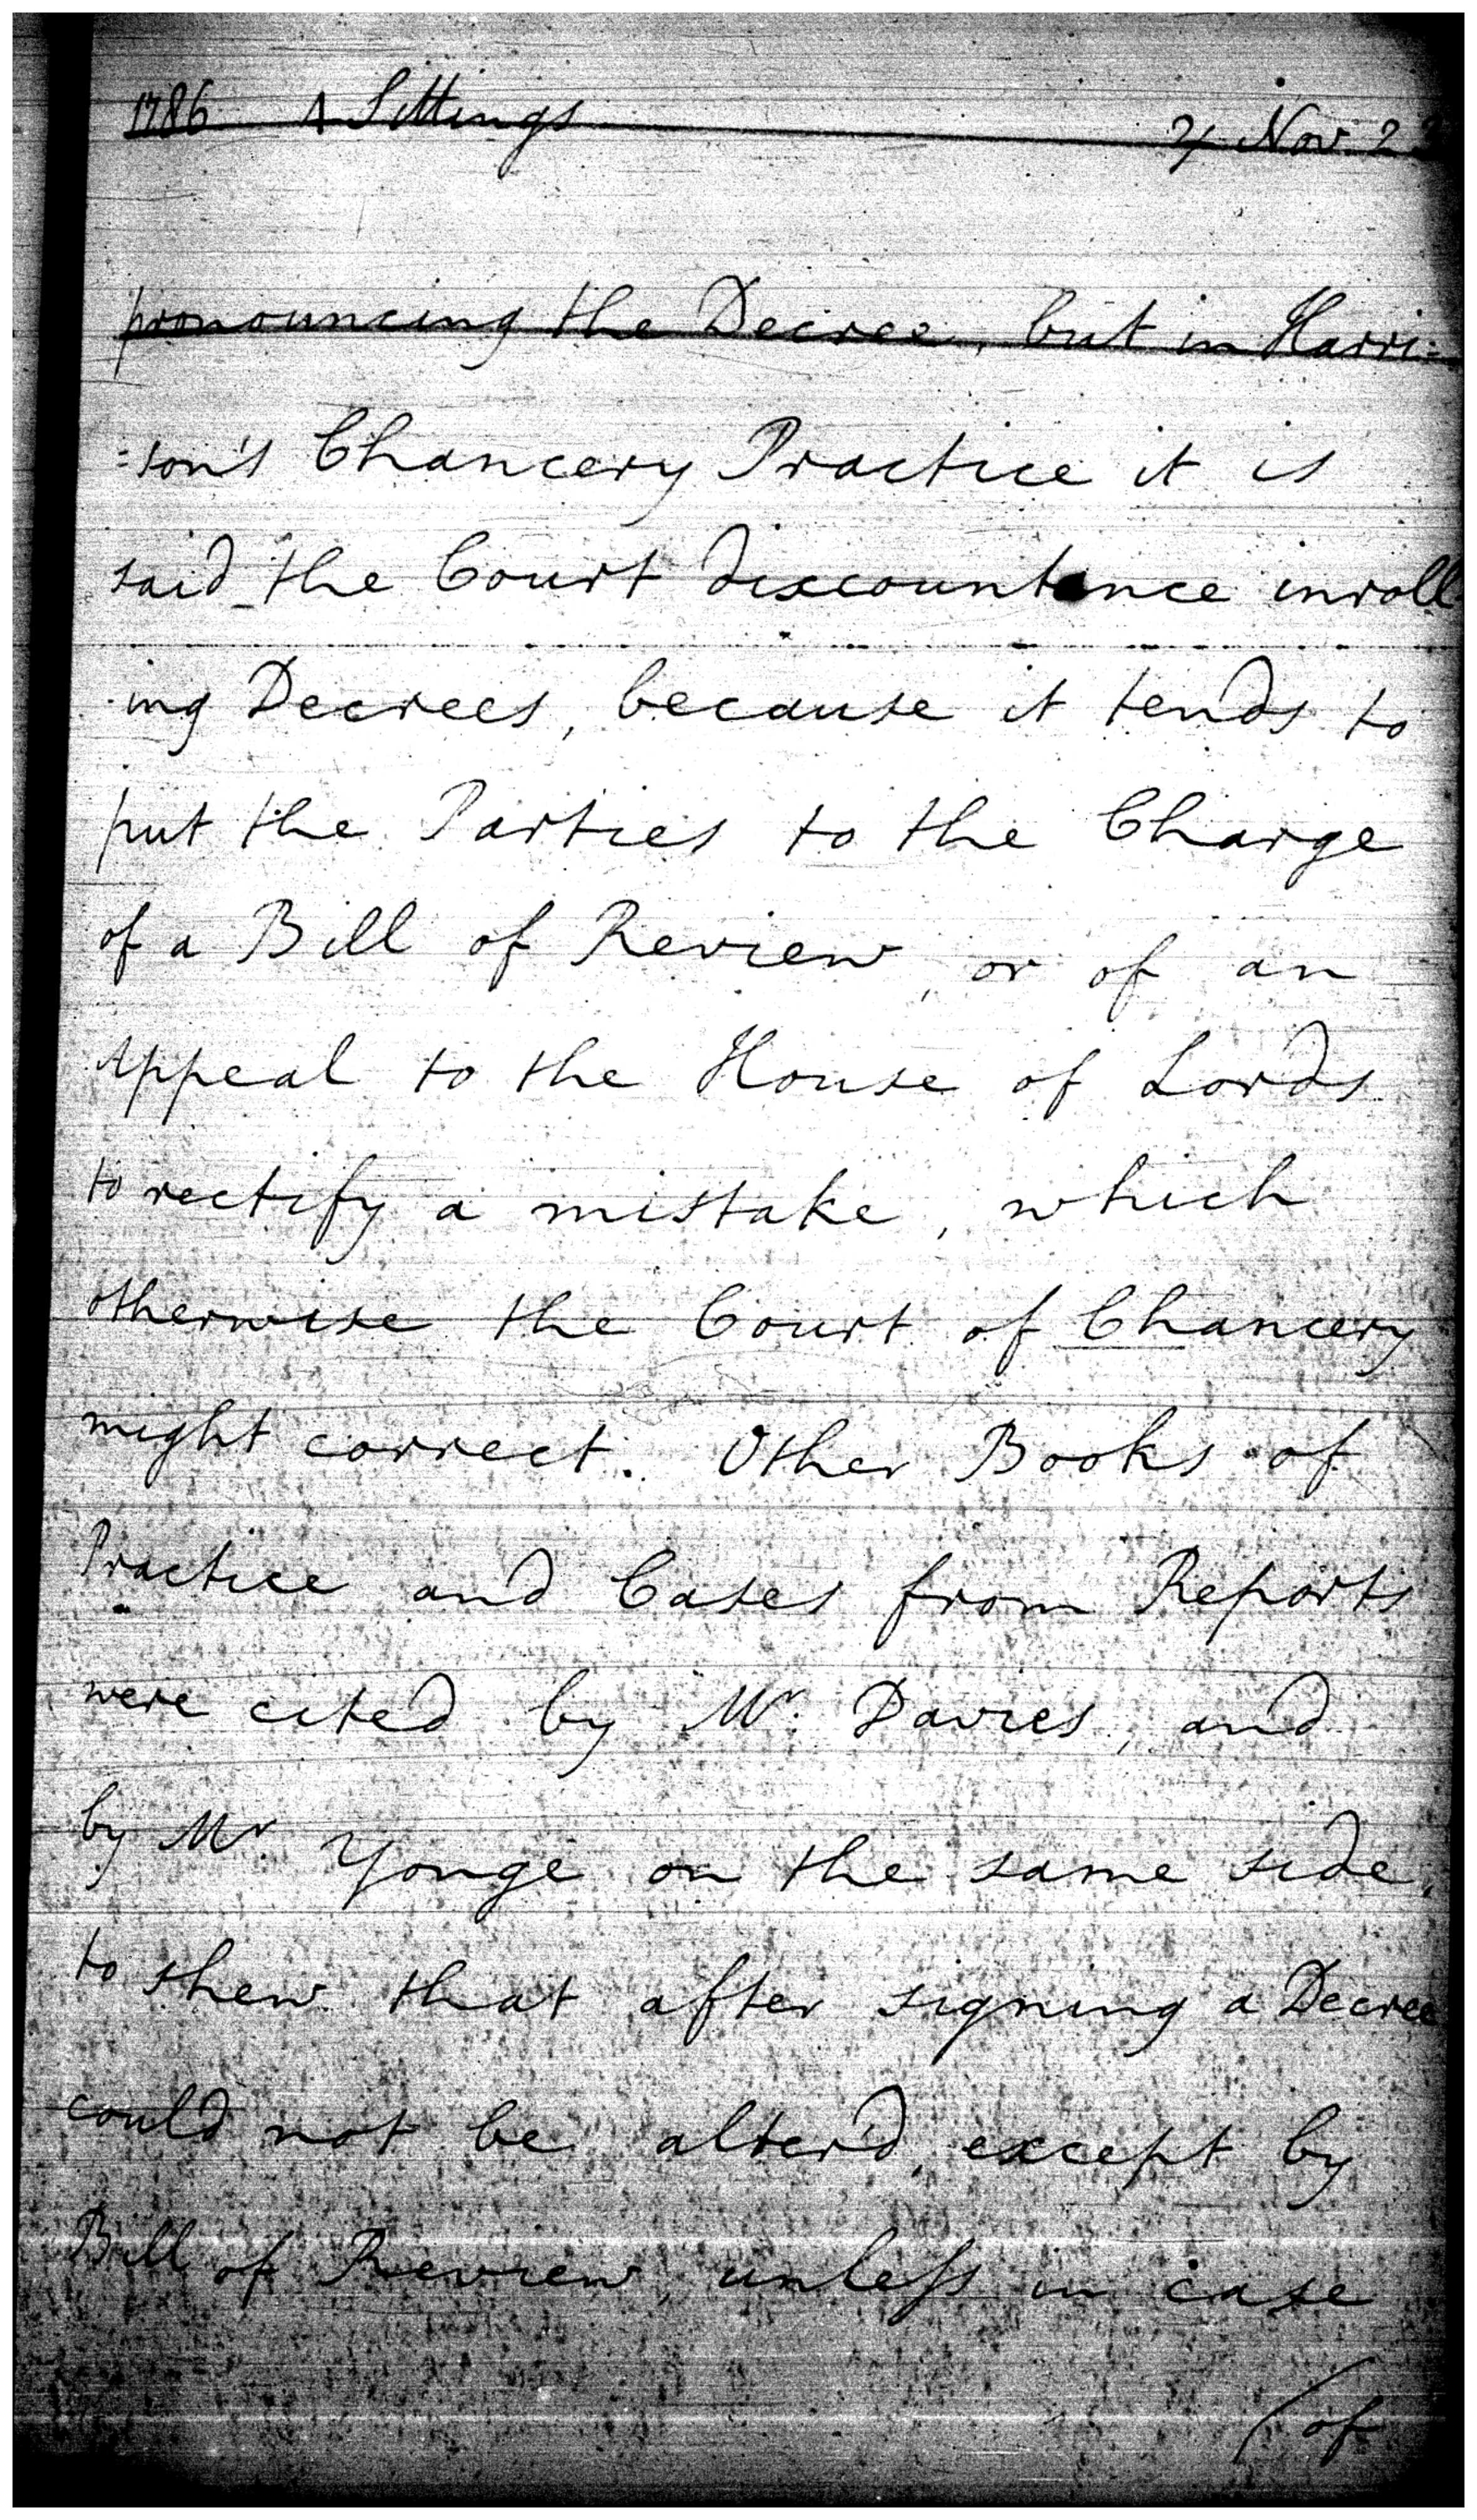 1786 A Sittings 24 Nov. 22
pronouncing the Decree, but in Harri=
=son's Chancery Practice it is
said the Court discountance inroll
-ing Decrees, because it tends to
put the Parties to the Charge
of a Bill of Review, or of an
Appeal to the House of Lords
to rectify a mistake, which
otherwise the Court of Chancery
might correct. Other Books of
Practice and Cases from Reports
were cited by Mr. Davies, and
by Mr. Yonge on the same side,
to shew that after signing a Decree
could not be alter'd, except by
Bill of Review, unless in case
/of